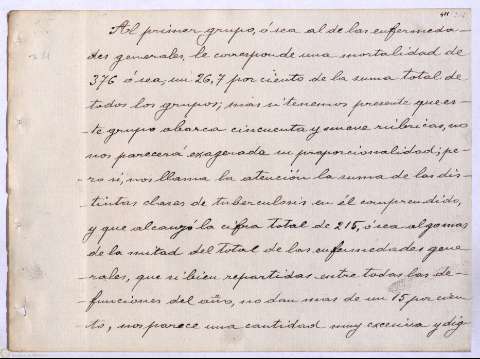 Al primer grupo, ó sea al de las enfermeda-
des generales, le corresponde una mortalidad de
376 ó sea, un 26,7 por ciento de la suma total de
todos los grupos; mas si tenemos presente que es-
te grupo abarca cincuenta y nueve rúbricas, no
nos parecerá exagerada su proporcionalidad; pe-
ro si, nos llama la atención la suma de las dis-
tintas clases de tuberculosis en él comprendido,
y que alcanzó la cifra total de 215, ó sea algo mas
de la mitad del total de las enfermedades gene-
rales, que si bien repartidas entre todas las de-
funciones del año, no dan mas de un 15 por cien-
to, nos parece una cantidad muy excesiva y dig-